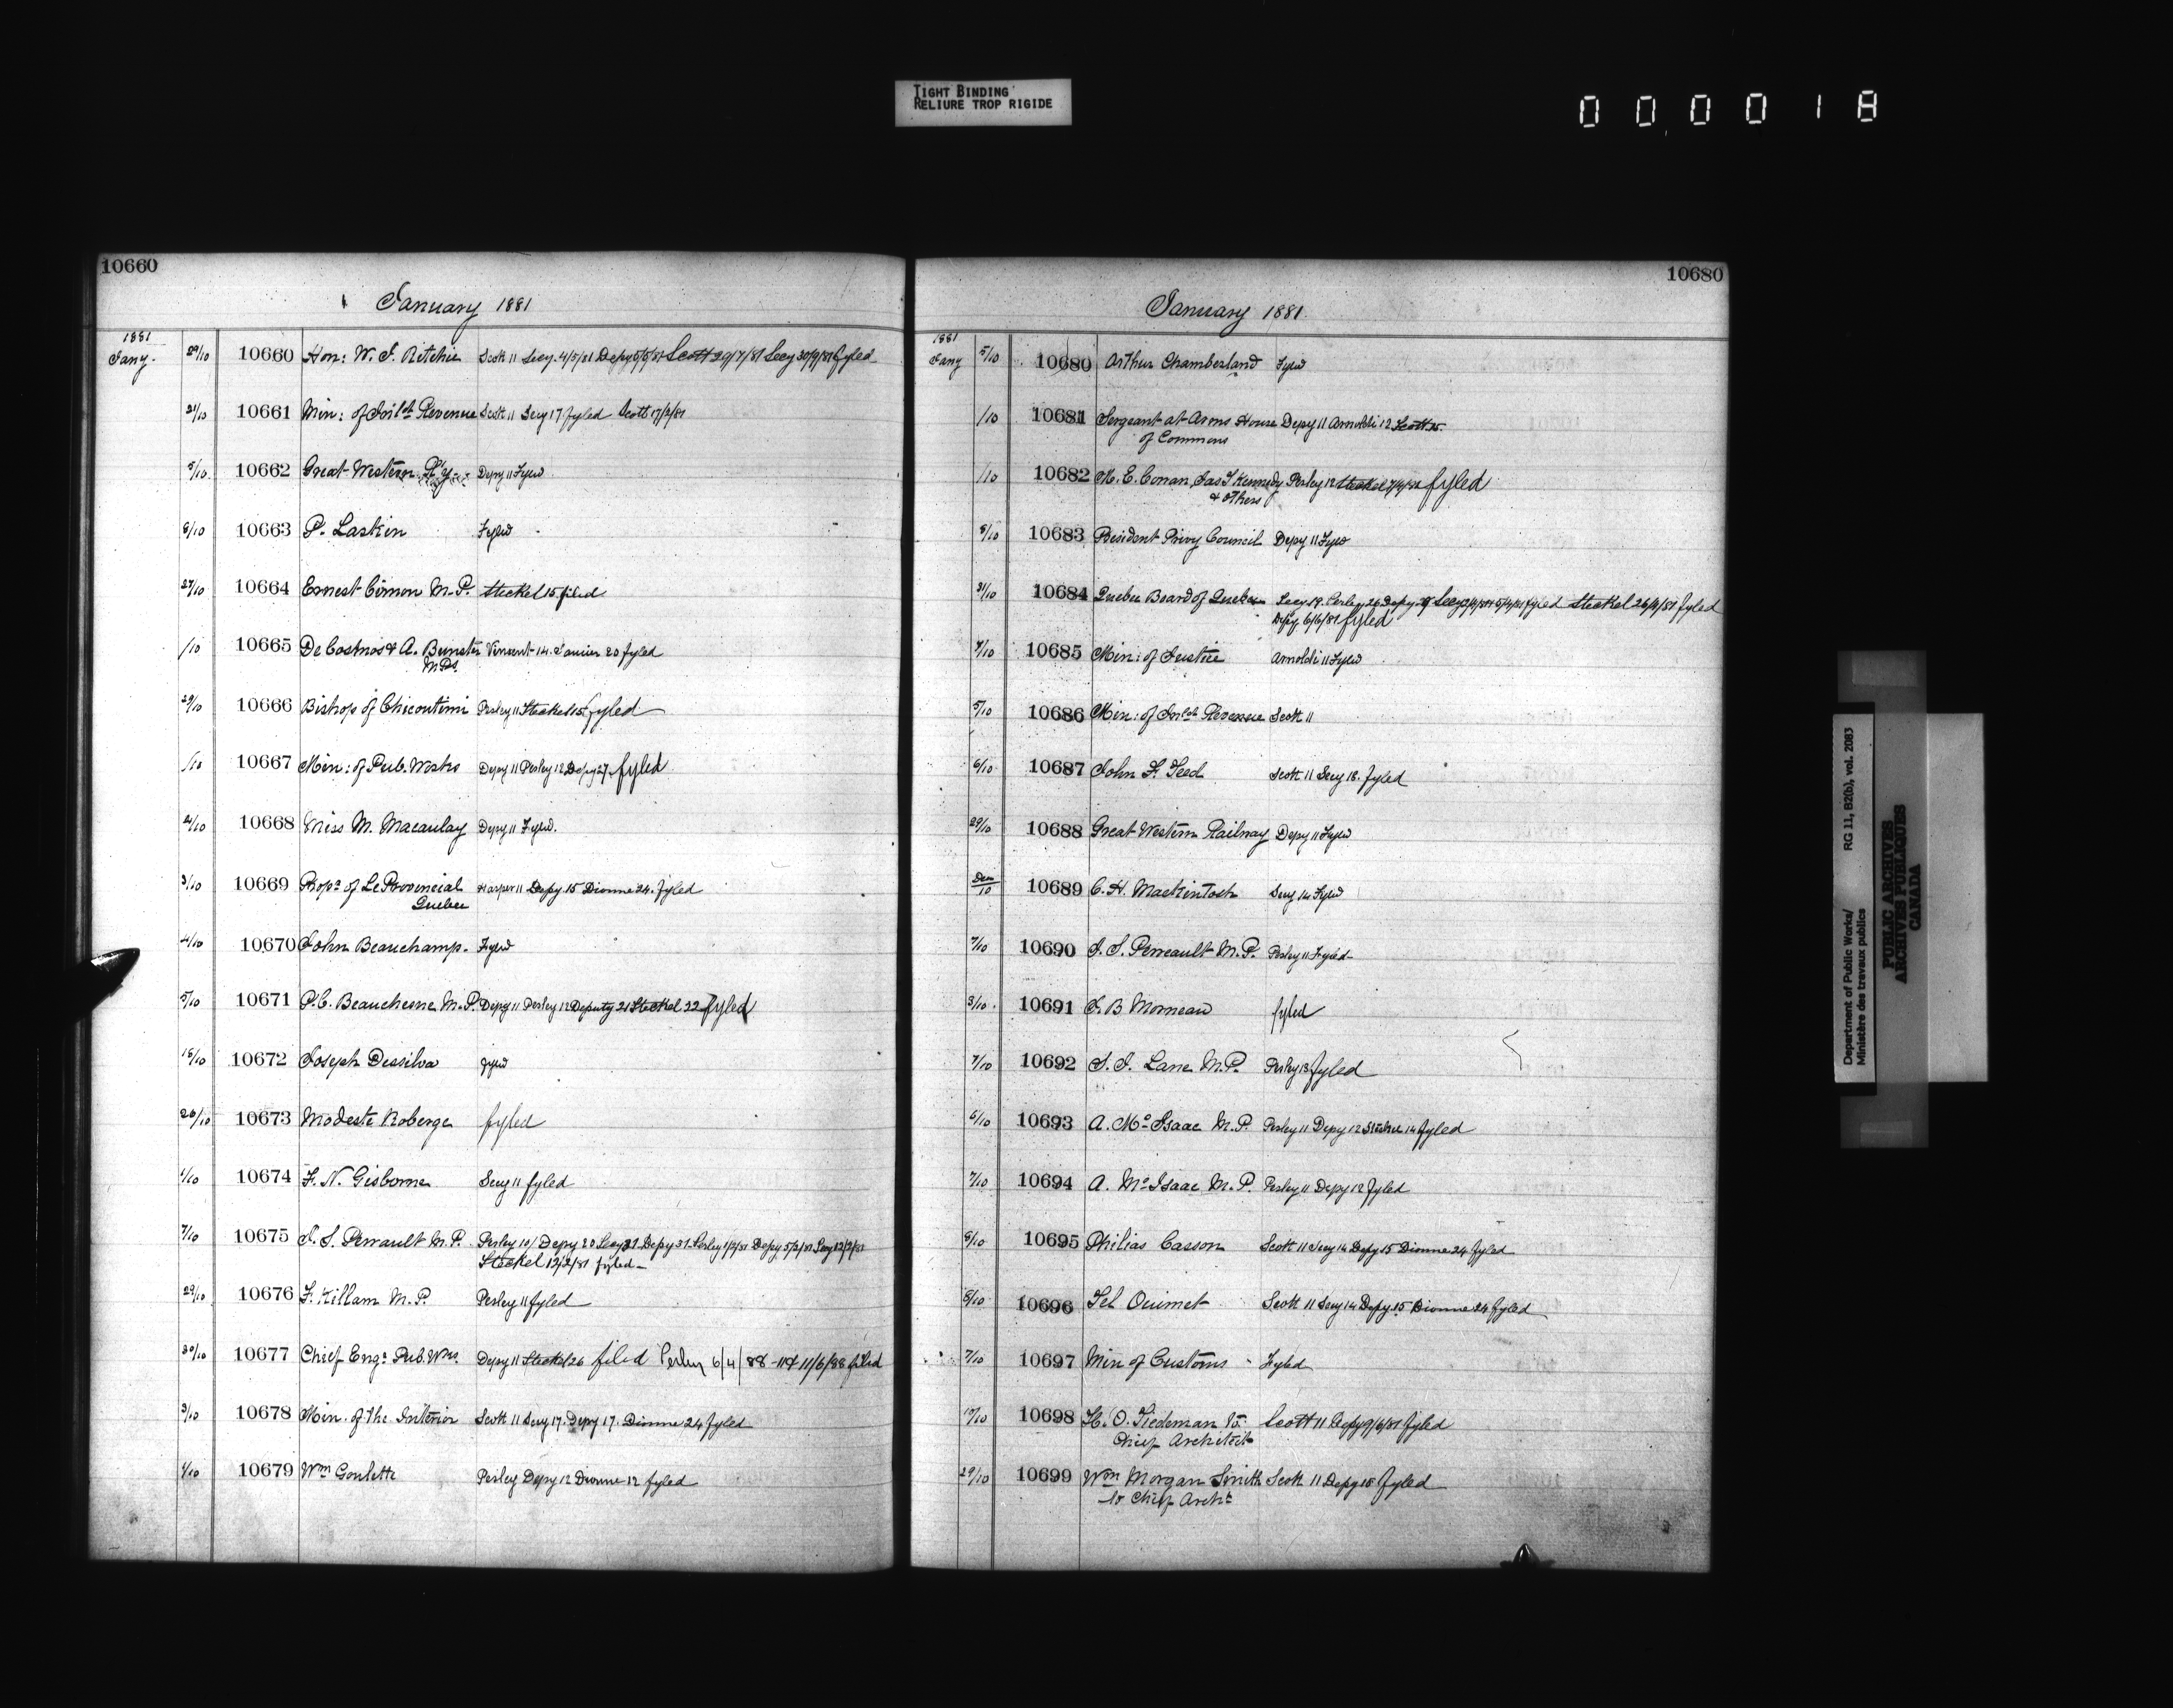 TIGHT BINDING
RELIURE TROP RIGIDE
000018
10660
January 1881
1881
Jany.
29/10 10660 Hon: W. J. Ritchie Scott 11 Secy. 4/5/81 Depy 5/5/81 Scott 29/7/81 Secy 30/9/81 fyled
21/10 10661 Min: of Inld Revenue Scott 11 Secy 17 fyled Scott 17/2/81
5/10 10662 Great Western Ry Depy 11 Fyled
8/10 10663 P. Laskin Fyled
27/10 10664 Ernest Cimon M.P. Steckel 15 filed
/10 10665 De Cosmos & A. Bunster Vincent 14. 20 fyled
M.Ps.
29/10 10666 Bishop of Chicoutimi Perley 11 Steckel 15 fyled
/10 10667 Min: of Pub. Works Depy 11 Perley 12 Depy 27 fyled
4/10 10668 Miss M. Macaulay Depy 11 Fyled.
3/10 10669 Props of Le Provincial Harper 11 Depy 15 Dionne 24. fyled
Quebec
4/10 10670 John Beauchamp. Fyled
5/10 10671 P.C. Beauchesne M.P. Depy 11 Perley 12 Deputy 21 Steckel 22 fyled
18/10 10672 Joseph Dessilva fyled
26/10 10673 Modeste Roberge fyled
1/10 10674 F. N. Gisborne Secy 11 fyled
7/10 10675 J. S. Perrault M.P. Perley 10/ Depy 20 Secy 21 Depy 31 Perley 1/2/81 Depy 5/2/81 Secy 12/2/81
Steckel 12/2/81 fyled
29/10 10676 F. Killam M.P. Perley 11 fyled
30/10 10677 Chief Engr Pub. Wks. Depy 11 Steckel 26 filed Perley 6/4/88 11/6/88 filed
3/10 10678 Min. of the Interior Scott 11 Secy 17. Depy 17. Dionne 24 fyled
1/10 10679 Wm Goulette Perley Depy 12 Dionne 12 fyled
10680
January 1881
1881
Jany
5/10 10680 Arthur Chamberland Fyled
/10 10681 Sergeant at Arms House Depy 11 Arnoldi 12 Scott 15
of Commons
/10 10682 M. E. Conan, Jas J Kennedy Perley 12 Steckel 7/4/81 fyled
& others
8/10 10683 President Privy Council Depy 11 Fyled
31/10 10684 Quebec Board of Quebec Secy 19. Perley 26 Depy fyled Steckel 26/4/81 fyled
Depy 6/6/81 fyled
7/10 10685 Min: of Justice Arnoldi 11 Fyled
5/10 10686 Min: of Inld Revenue Scott 11
6/10 10687 John F. Teed Scott 11 Secy 18. fyled
29/10 10688 Great Western Railway Depy 11 Fyled
Dec/10 10689 C. H. Mackintosh Secy 14 Fyled
7/10 10690 J. S. Perreault M.P. Perley 11 Fyled
3/10 10691 J. B Morneau fyled
7/10 10692 S. J. Lane M.P. Perley 13 fyled
6/10 10693 A. Mc Isaac M.P. Perley 11 Depy 12 Steckel 14 fyled
7/10 10694 A. Mc Isaac M.P. Perley 11 Depy 12 fyled
8/10 10695 Philias Casson Scott 11 Secy 14 Depy 15 Dionne 24 fyled
8/10 10696 Tel Ouimet Scott 11 Secy 14 Depy 15 Dionne 24 fyled
7/10 10697 Min of Customs Fyled
10/10 10698 H. O. Tiedeman to Scott 11 Depy 9/6/81 fyled
Chief Architect
29/10 10699 Wm Morgan Smith Scott 11 Depy 15 fyled
to Chief Archt
Department of Public Works/ RG 11, B2(b), vol. 2083
Ministère des travaux publics
PUBLIC ARCHIVES
ARCHIVES PUBLIQUES
CANADA